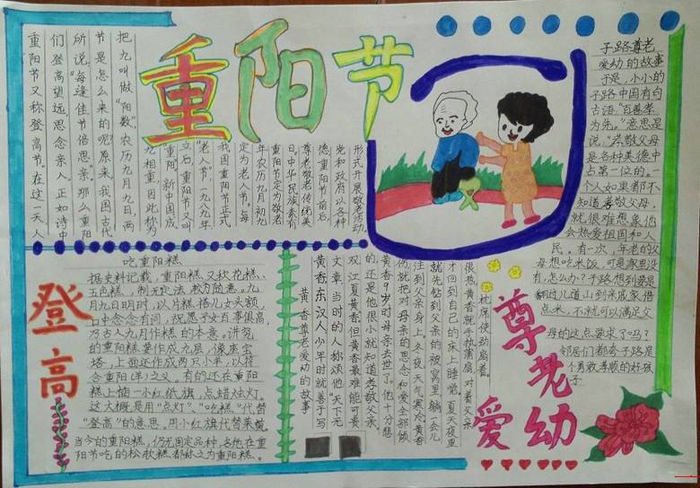 重阳节
重阳节又称登高节。在这一天人
们登高望远,思念亲人,正如诗中
所说"每逢佳节倍思亲。"那么重阳
节是怎么来的呢?原来我国古代
把九叫做"阳数",农历九月九日,两
九相重,因此称为
"重阳"。新中国成
立后,重阳节又叫
"老人节"。一九八九年
我国重阳节正式
定为老人节,每
年农历九月初九
重阳节定为敬老
日,中华民族素有
尊老敬老传统美
德,重阳节前后,
党和政府以各种
形式开展敬老活动。
子路尊老
爱幼的故事
于是,小小的
子路中国有句
古语:"百善孝
为先。"意思是
说,孝敬父母
是各种美德中
占第一位的。一
个人如果都不
知道孝敬父母,
就很难想象他
会热爱祖国和人
民。有一次,年老的父
母想吃米饭,可是家里没
有,怎么办?子路想到要是
翻过几道山到亲戚家借
点米,不就可以满足父
母的这点要求了吗?
邻居们都夸子路是
个勇敢孝顺的好孩
子
登高
吃重阳糕
据史料记载,重阳糕又称花糕、
五色糕,制无定法,较为随意。九月
九日天明时,以片糕搭儿女头额,
口中念念有词,祝愿子女百事俱高,
乃古人九月作糕的本意。讲究
的重阳糕要作成九层,像座宝
塔,上面还作成两只小羊,以符
合重阳(羊)之义。有的还在重阳
糕上插一小红纸旗,点蜡烛灯。
这大概是用"点灯"、"吃糕"代替
"登高"的意思,用小红旗代替茱萸。
当今的重阳糕,仍无固定品种,各地在重
阳节吃的松软糕都称之为重阳糕。
黄香尊老爱幼的故事
黄香东汉人,少年时就善于写
文章,当时的人称颂他"天下无
双,江夏黄香"但黄香最难能可贵
的还是他很小就知道孝敬父亲。
黄香9岁时母亲去世了。他十分悲
伤,就把对母亲的思念和爱全部倾
注到父亲身上。冬夜,天气寒冷,黄香
就先钻到父亲的被窝里躺一会儿
才回到自己的床上睡觉。夏天夜里
很热黄香就手执蒲扇,对着父亲
枕席使劲扇着
尊老爱幼